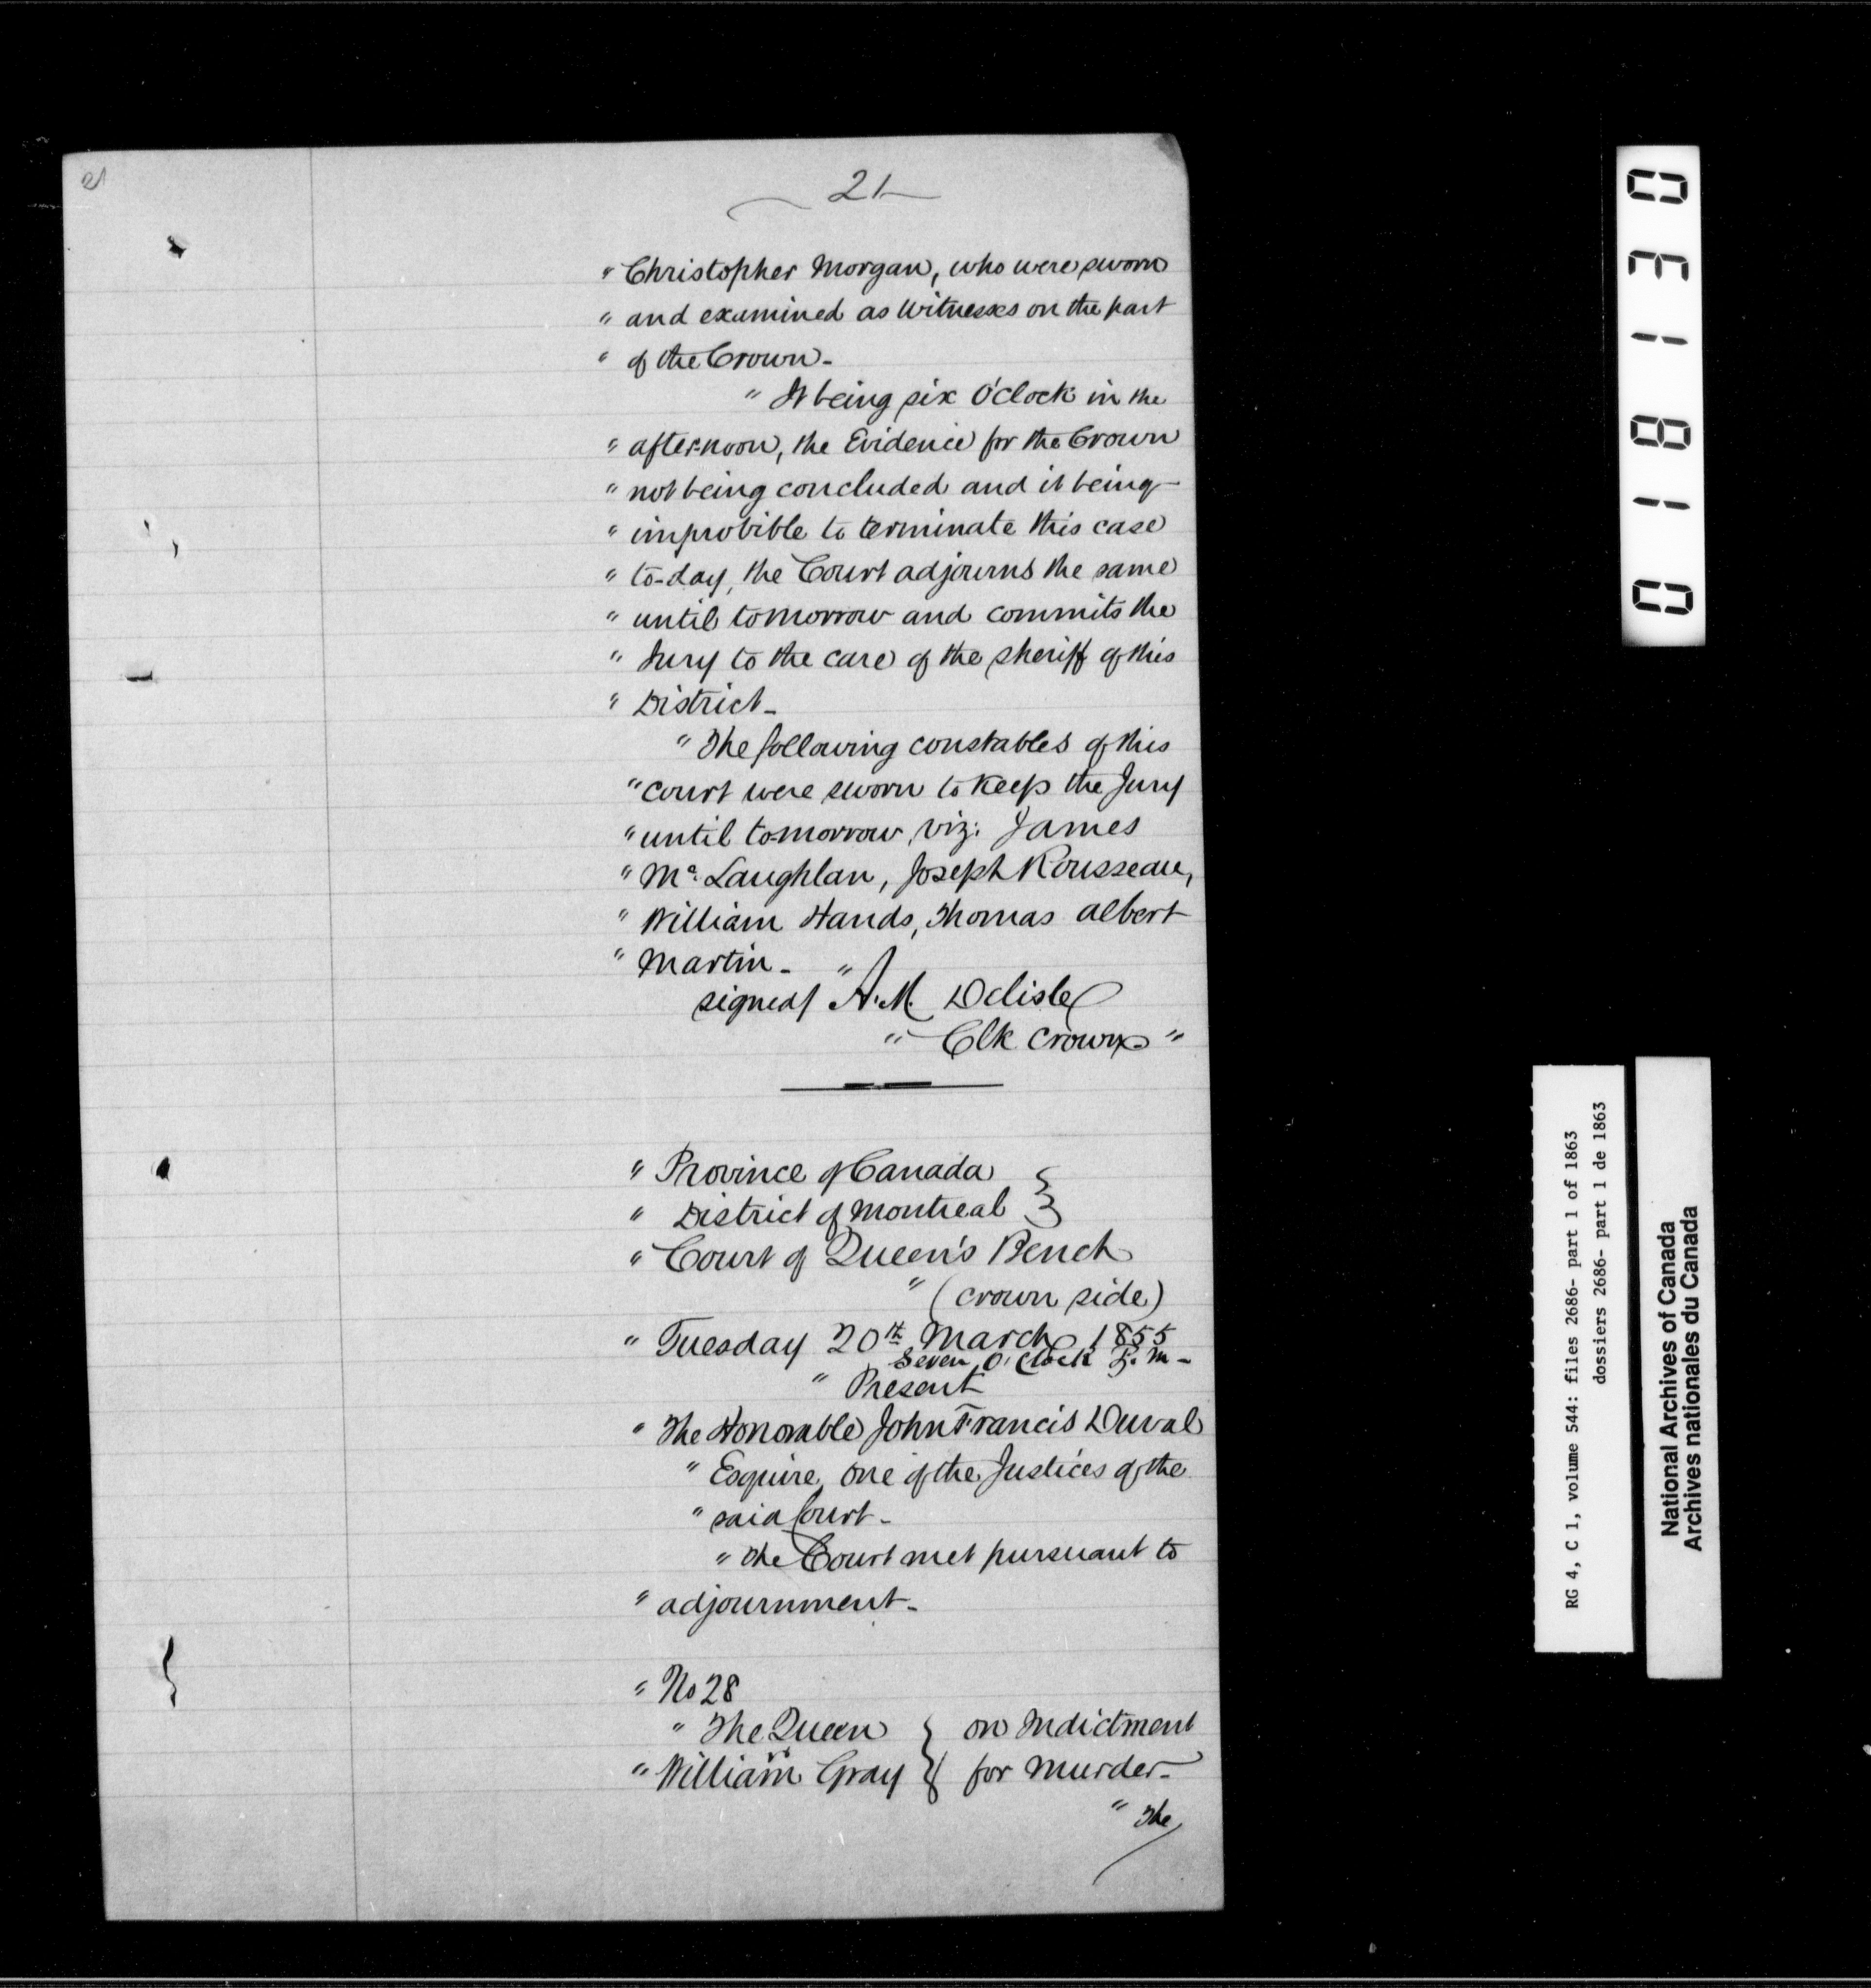 21
21
" Christopher Morgan, who were sworn
" and examined as Witnesses on the part
" of the Crown -
" It being six O'Clock in the
" after-noon, the Evidence for the Crown
" not being concluded and it being
" improbible to terminate this case
" to-day, the Court adjourns the same
" until tomorrow and commits the
" Jury to the care of the Sheriff of this
" District -
" The following constables of this
" court were sworn to keep the Jury
" until to-morrow, viz: James
" Mc. Laughlan, Joseph Rousseau,
" William Hands, Thomas Albert
" Martin - "
signed/ A. M. Delisle
" Clk Crown "
" Province of Canada }
" District of Montreal }
" Court of Queen's Bench
" (crown side)
" Tuesday 20th March 1855
Seven O'Clock P. M -
" Present
" The Honorable John Francis Duval
" Esquire, one of the Justices of the
" said Court -
" The Court met pursuant to
" adjournment -
" No 28
" The Queen } on Indictment
vs
" William Gray } for Murder -
" The
018130
RG 4, C 1, volume 544: files 2686- part 1 of 1863
dossiers 2686- part 1 de 1863
National Archives of Canada
Archives nationales du Canada